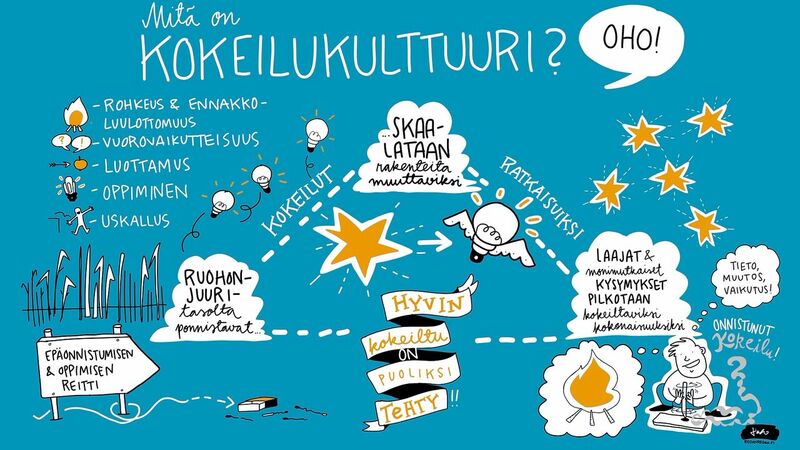 Mitä on
KOKEILUKULTTUURI?
OHO!
– ROHKEUS & ENNAKKO-
LUULOTTOMUUS
– VUOROVAIKUTTEISUUS
– LUOTTAMUS
– OPPIMINEN
– USKALLUS
KOKEILUT
...SKAA-
LATAAN
rakenteita
muuttaviksi
RATKAISUIKSI
RUOHON-
JUURI-
tasolta
ponnistavat...
LAAJAT &
monimutkaiset
KYSYMYKSET
PILKOTAAN
kokeiltaviksi
kokonaisuuksiksi
TIETO,
MUUTOS,
VAIKUTUS!
ONNISTUNUT
Kokeilu!
HYVIN
kokeiltu
ON
PUOLIKSI
TEHTY!!
EPÄONNISTUMISEN
& OPPIMISEN
REITTI